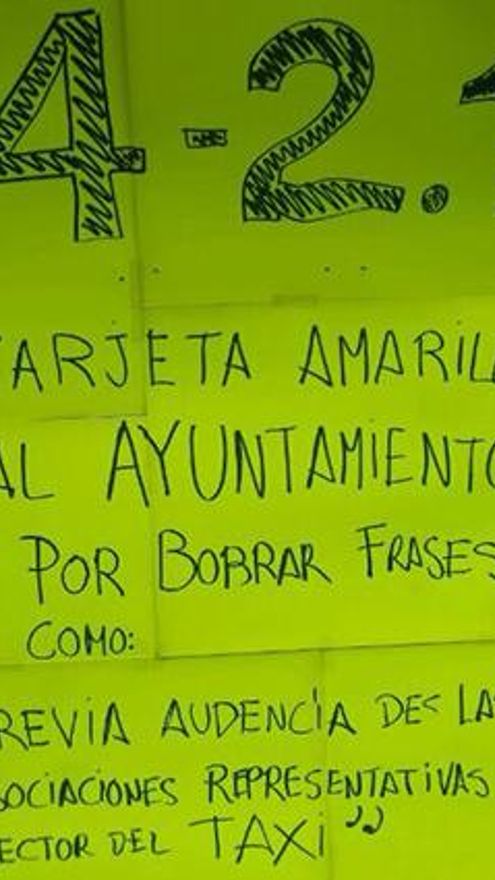 4-2.
TARJETA AMARIL
AL AYUNTAMIENTO
POR BOBRAR FRASES
COMO:
REVIA AUDENCIA DE LA
SOCIACIONES REPRESENTATIVAS
ECTOR DEL TAXI”